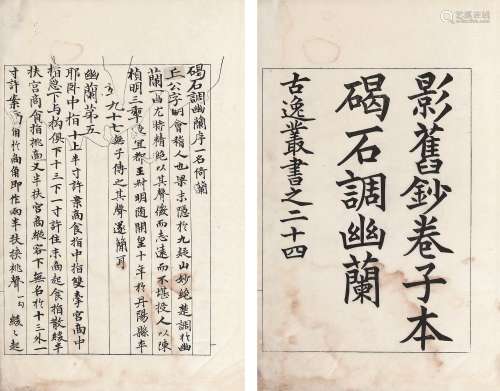 影舊鈔卷子本
碣石調幽蘭
古逸叢書之二十四
碣石調幽蘭序一名倚蘭
丘公字明會稽人也梁末隱於九疑山妙絕楚調於幽
蘭一曲尤特精絕以其聲微而志遠而不堪授人以陳
禎明三年授宜都王叔明隨開皇十年於丹陽縣卒
九十七無子傳之其聲遂簡耳
幽蘭第五
耶臥中指十上半寸許案商食指中指雙牽宮商中
指急下与拘俱下十三下一寸許住末商起食指散緩半
扶宮商食指挑商又半扶宮商縱容下無名於十三外一
寸許案商角於商角即作兩半扶挾挑聲一句緩〻起